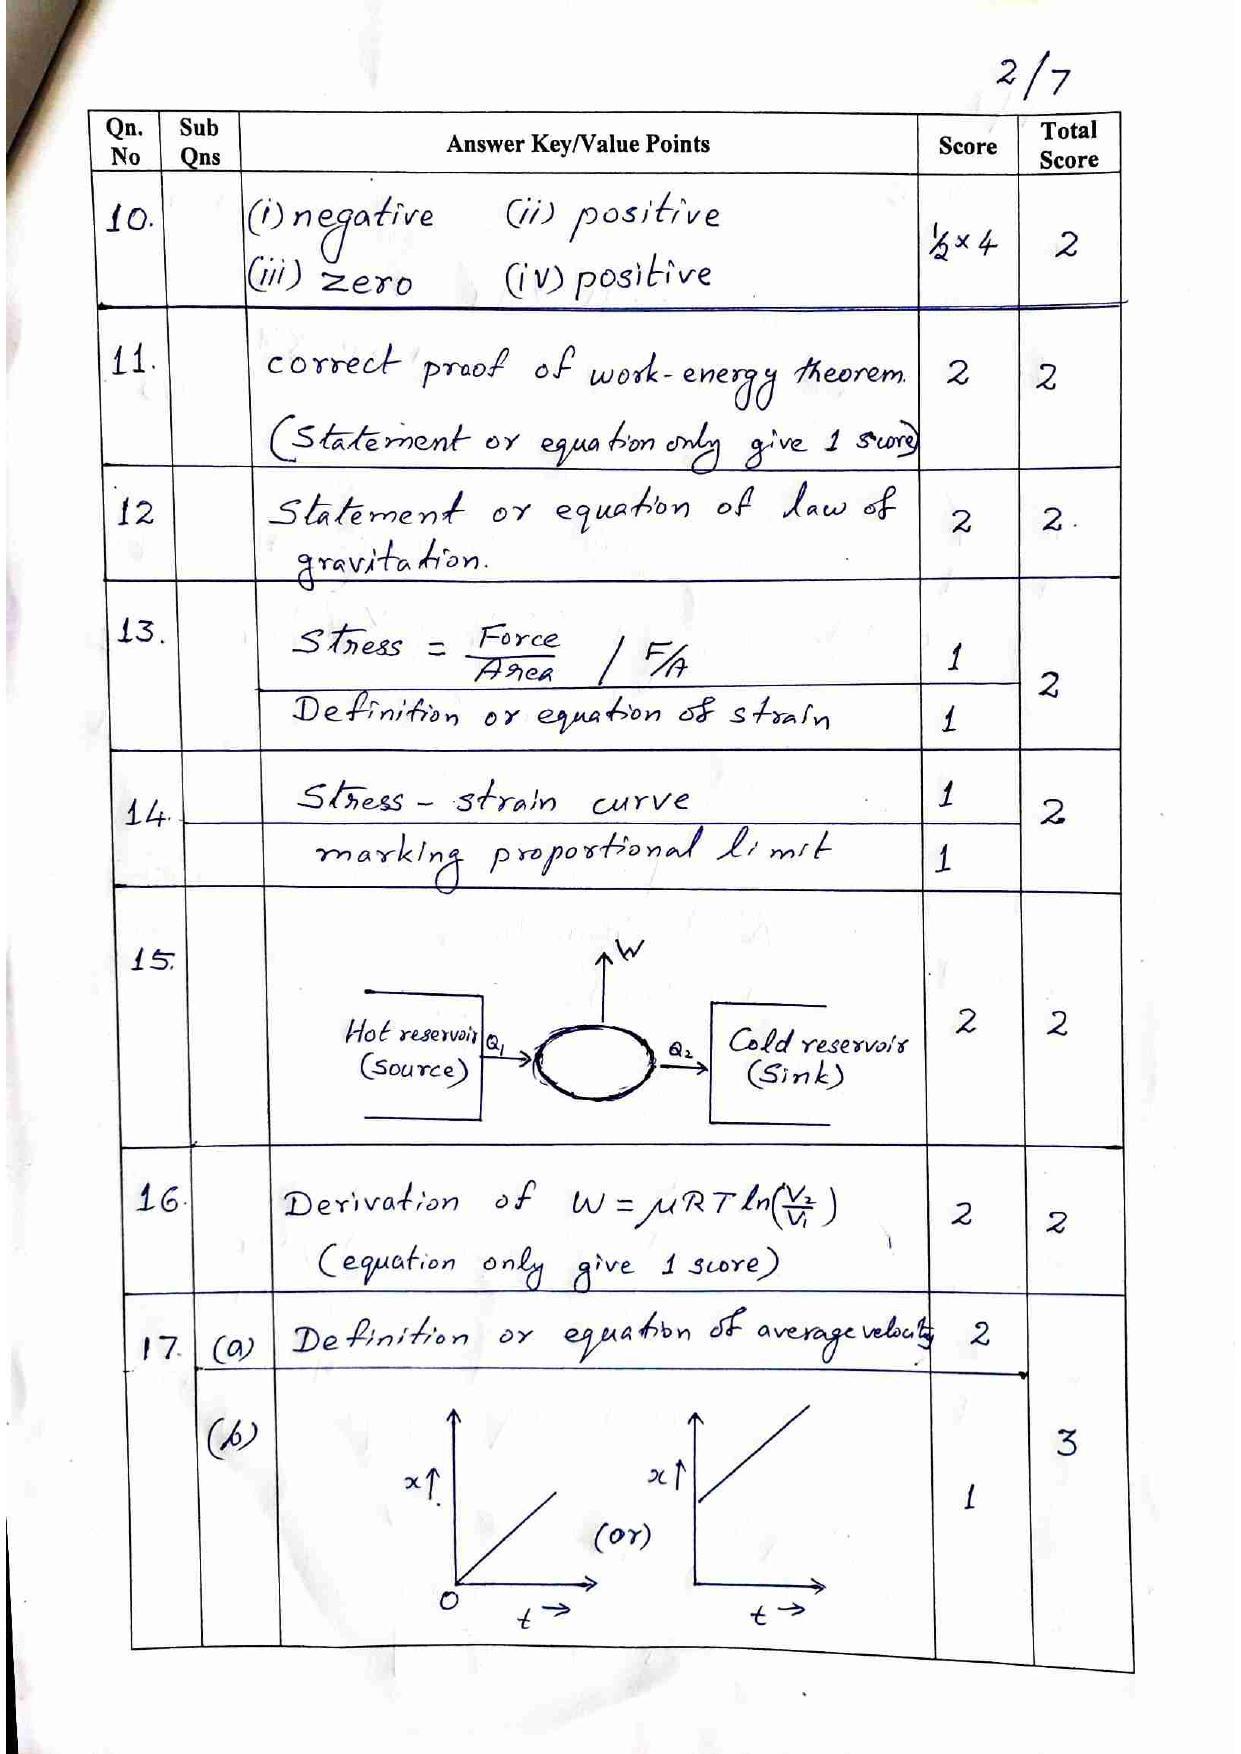 2/7
Qn. No Sub Qns Answer Key/Value Points Score Total Score
10. (i) negative (ii) positive ½ × 4 2
(iii) zero (iv) positive
11. correct proof of work-energy theorem. 2 2
(Statement or equation only give 1 score)
12 Statement or equation of law of 2 2.
gravitation.
13. Stress = Force/Area / F/A 1 2
Definition or equation of strain 1
14. Stress - strain curve 1 2
marking proportional limit 1
15. W 2 2
Hot reservoir Q₁ Q₂ Cold reservoir
(Source) (Sink)
16. Derivation of W = μRT ln(V₂/V₁) 2 2
(equation only give 1 score)
17. (a) Definition or equation of average velocity 2 3
(b) x↑ (or) x↑ 1
O t→ t→